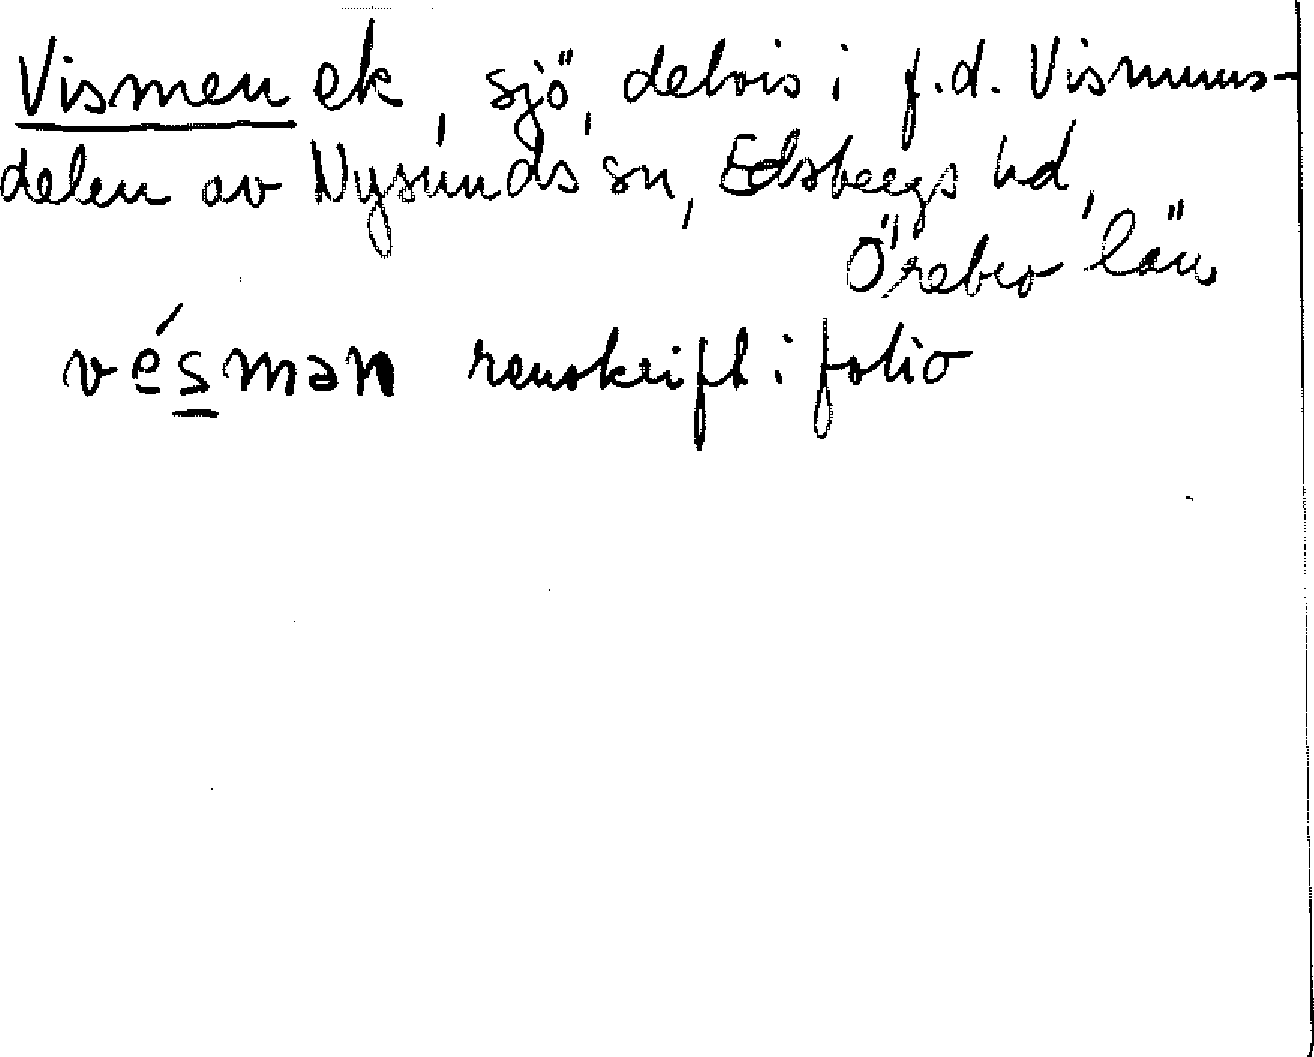 Vismen ek, sjö, delvis i f.d. Vismuns-
delen av Nysunds sn, Edsbergs hd,
Örebro län
vésmən renskrift i folio